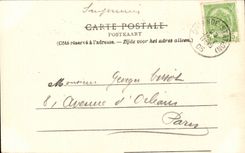 CARTE POSTALE
POSTKAART
(Côté réservé à l'adresse. – Zijde voor het adres alleen.)
Monsieur Georges
81 Avenue d'Orléans
Paris